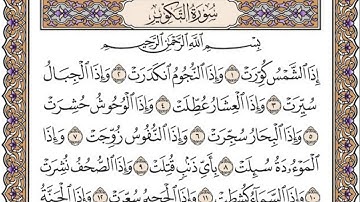 سُورَةُ التَّكْوِيرِ
بِسْمِ اللَّهِ الرَّحْمَٰنِ الرَّحِيمِ
إِذَا الشَّمْسُ كُوِّرَتْ ١ وَإِذَا النُّجُومُ انْكَدَرَتْ ٢ وَإِذَا الْجِبَالُ
سُيِّرَتْ ٣ وَإِذَا الْعِشَارُ عُطِّلَتْ ٤ وَإِذَا الْوُحُوشُ حُشِرَتْ
٥ وَإِذَا الْبِحَارُ سُجِّرَتْ ٦ وَإِذَا النُّفُوسُ زُوِّجَتْ ٧ وَإِذَا
الْمَوْءُۥدَةُ سُئِلَتْ ٨ بِأَيِّ ذَنْبٍ قُتِلَتْ ٩ وَإِذَا الصُّحُفُ نُشِرَتْ
١٠ وَإِذَا السَّمَاءُ كُشِطَتْ ١١ وَإِذَا الْجَحِيمُ سُعِّرَتْ ١٢ وَإِذَا الْجَنَّةُ